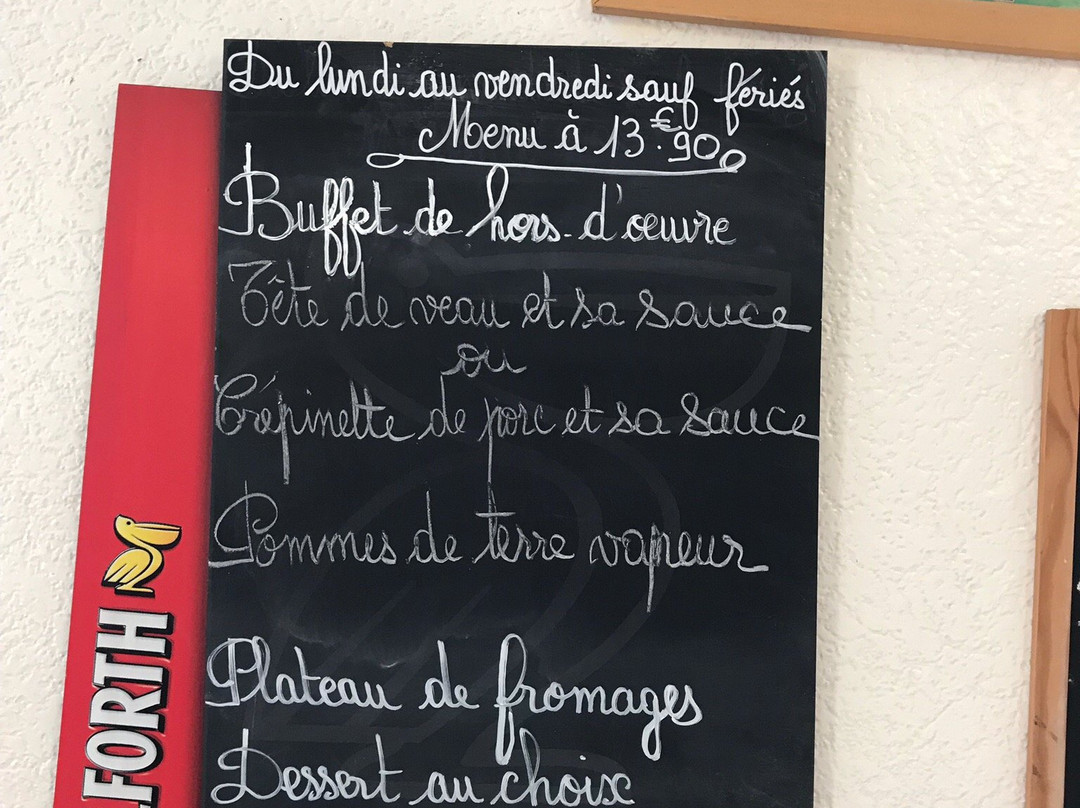 Du lundi au vendredi sauf fériés
Menu à 13.€90
Buffet de hors d'œuvre
Tête de veau et sa sauce
ou
Crépinette de porc et sa sauce
Pommes de terre vapeur
Plateau de fromages
Dessert au choix
FORTH